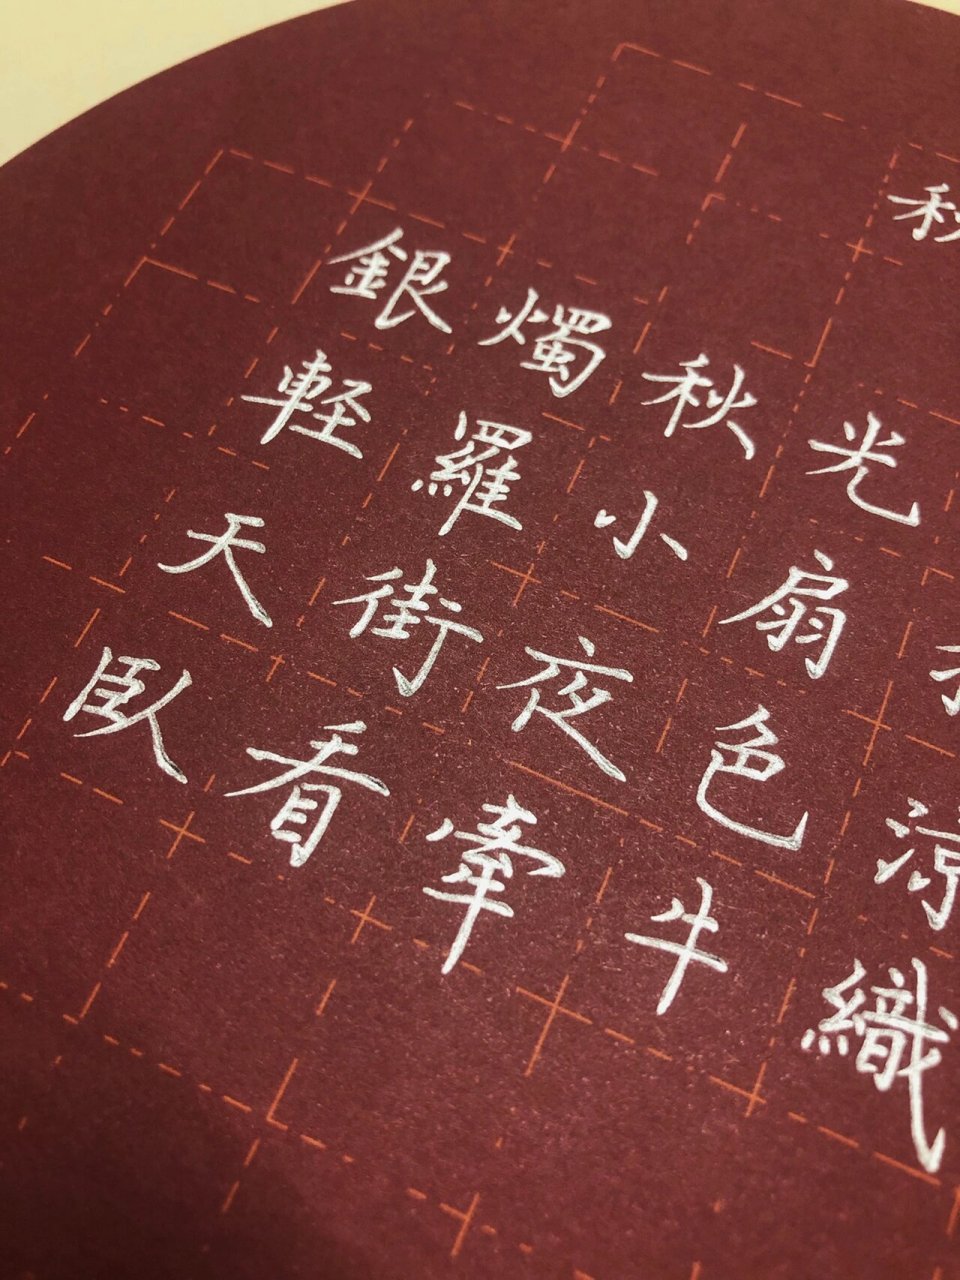 秋
銀燭秋光
軽羅小扇
天街夜色涼
臥看牽牛織